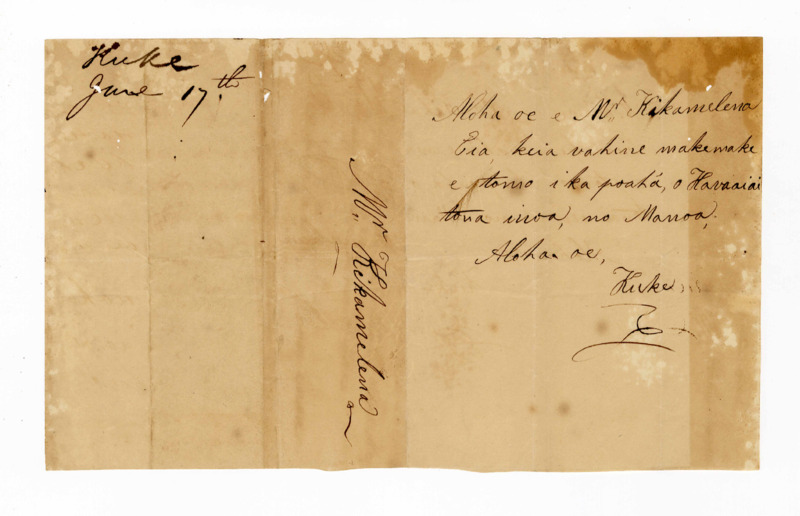 Kuke
June 17th
Mr. Kikamelena
Aloha oe e Mr. Kikamelena
Eia, keia vahine makemake
e tomo i ka poahá, o Havaaiai
tona inoa, no Manoa,
Aloha oe,
Kuke